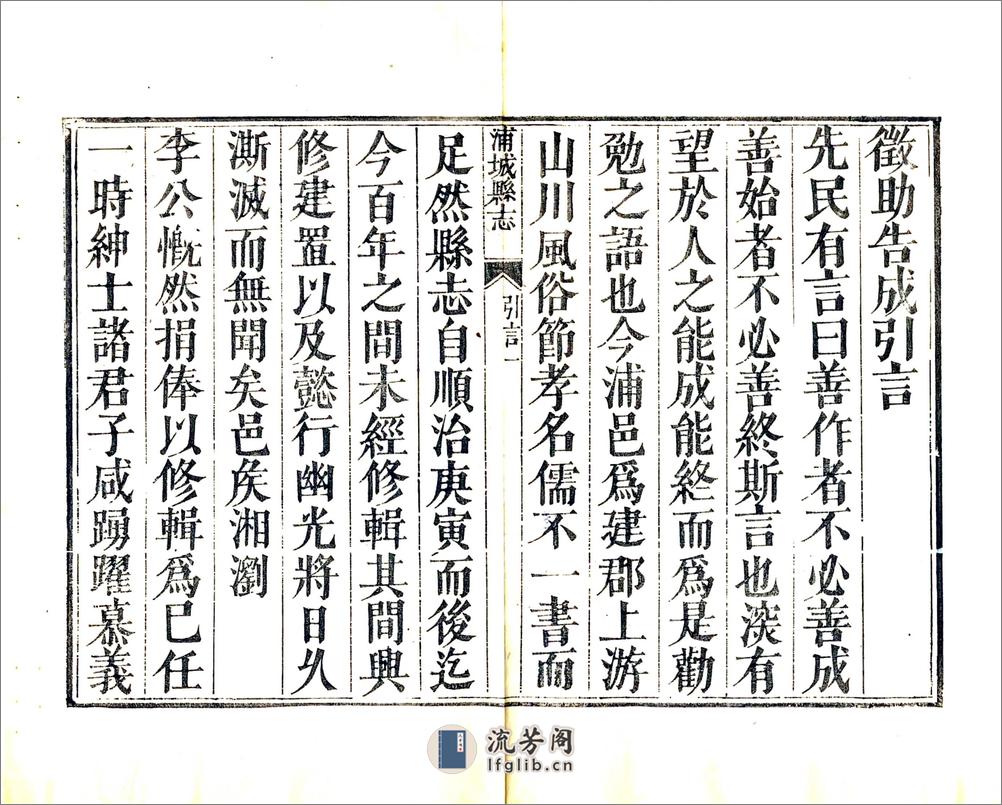 徵助告成引言
先民有言曰善作者不必善成
善始者不必善終斯言也深有
望於人之能成能終而爲是勸
勉之語也今浦邑爲建郡上游
山川風俗節孝名儒不一書而
浦城縣志
引言
一
足然縣志自順治庚寅而後迄
今百年之間未經修輯其間興
修建置以及懿行幽光將日乆
澌滅而無聞矣邑矦湘瀏
李公慨然捐俸以修輯爲已任
一時紳士諸君子咸踴躍慕義
流芳阁
lfglib.cn